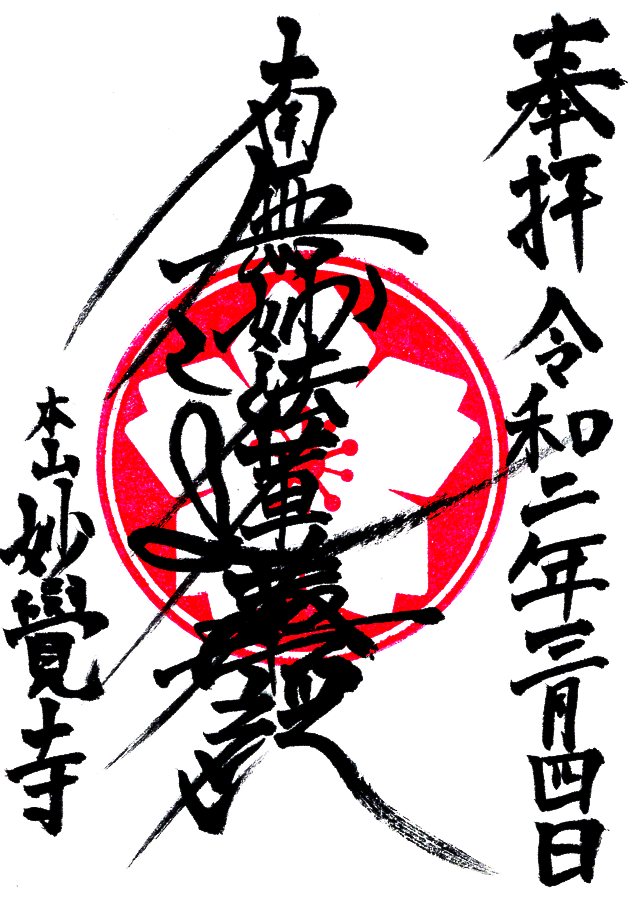 奉拝 令和二年三月四日
南無妙法蓮華經
本山 妙覺寺